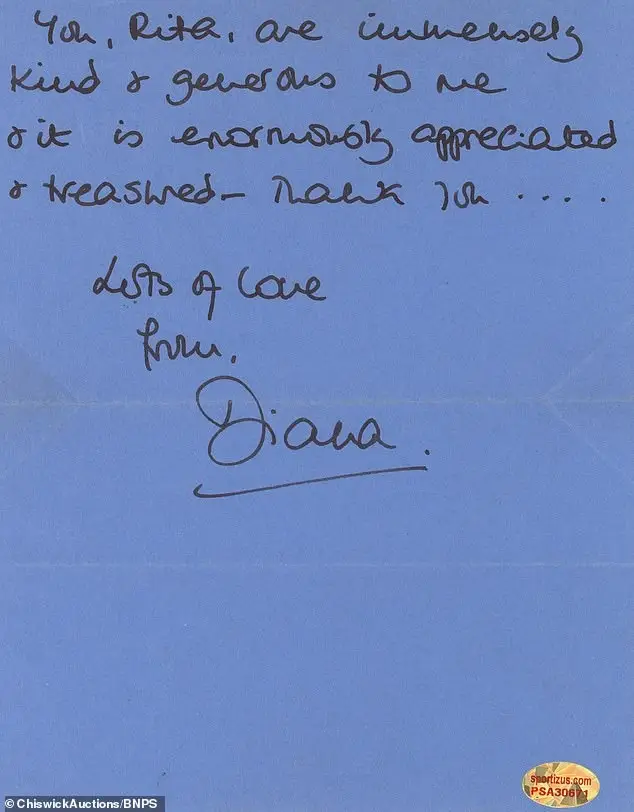 You, Rita, are immensely
kind & generous to me
& it is enormously appreciated
& treasured – Thank you ....
Lots of love
from,
Diana.
sportizus.com
PSA30671
© ChiswickAuctions/BNPS